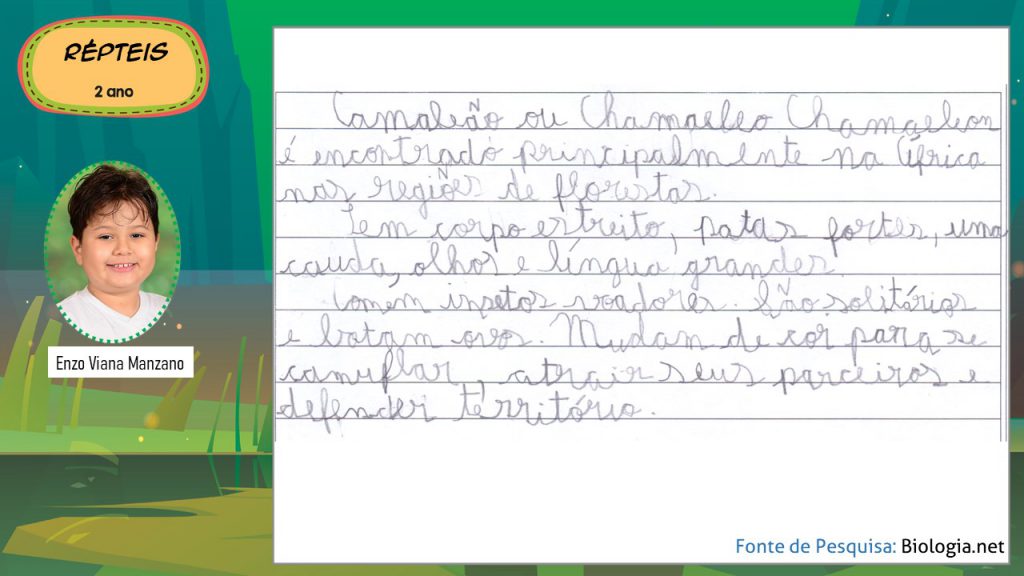 RÉPTEIS
2 ano
Enzo Viana Manzano
Camaleão ou Chamaeleo Chamaeleon
é encontrado principalmente na África
nas regiões de florestas.
Tem corpo estreito, patas fortes, uma
cauda, olhos e língua grandes.
Comem insetos voadores. São solitários
e botam ovos. Mudam de cor para se
camuflar, atrair seus parceiros e
defender território.
Fonte de Pesquisa: Biologia.net